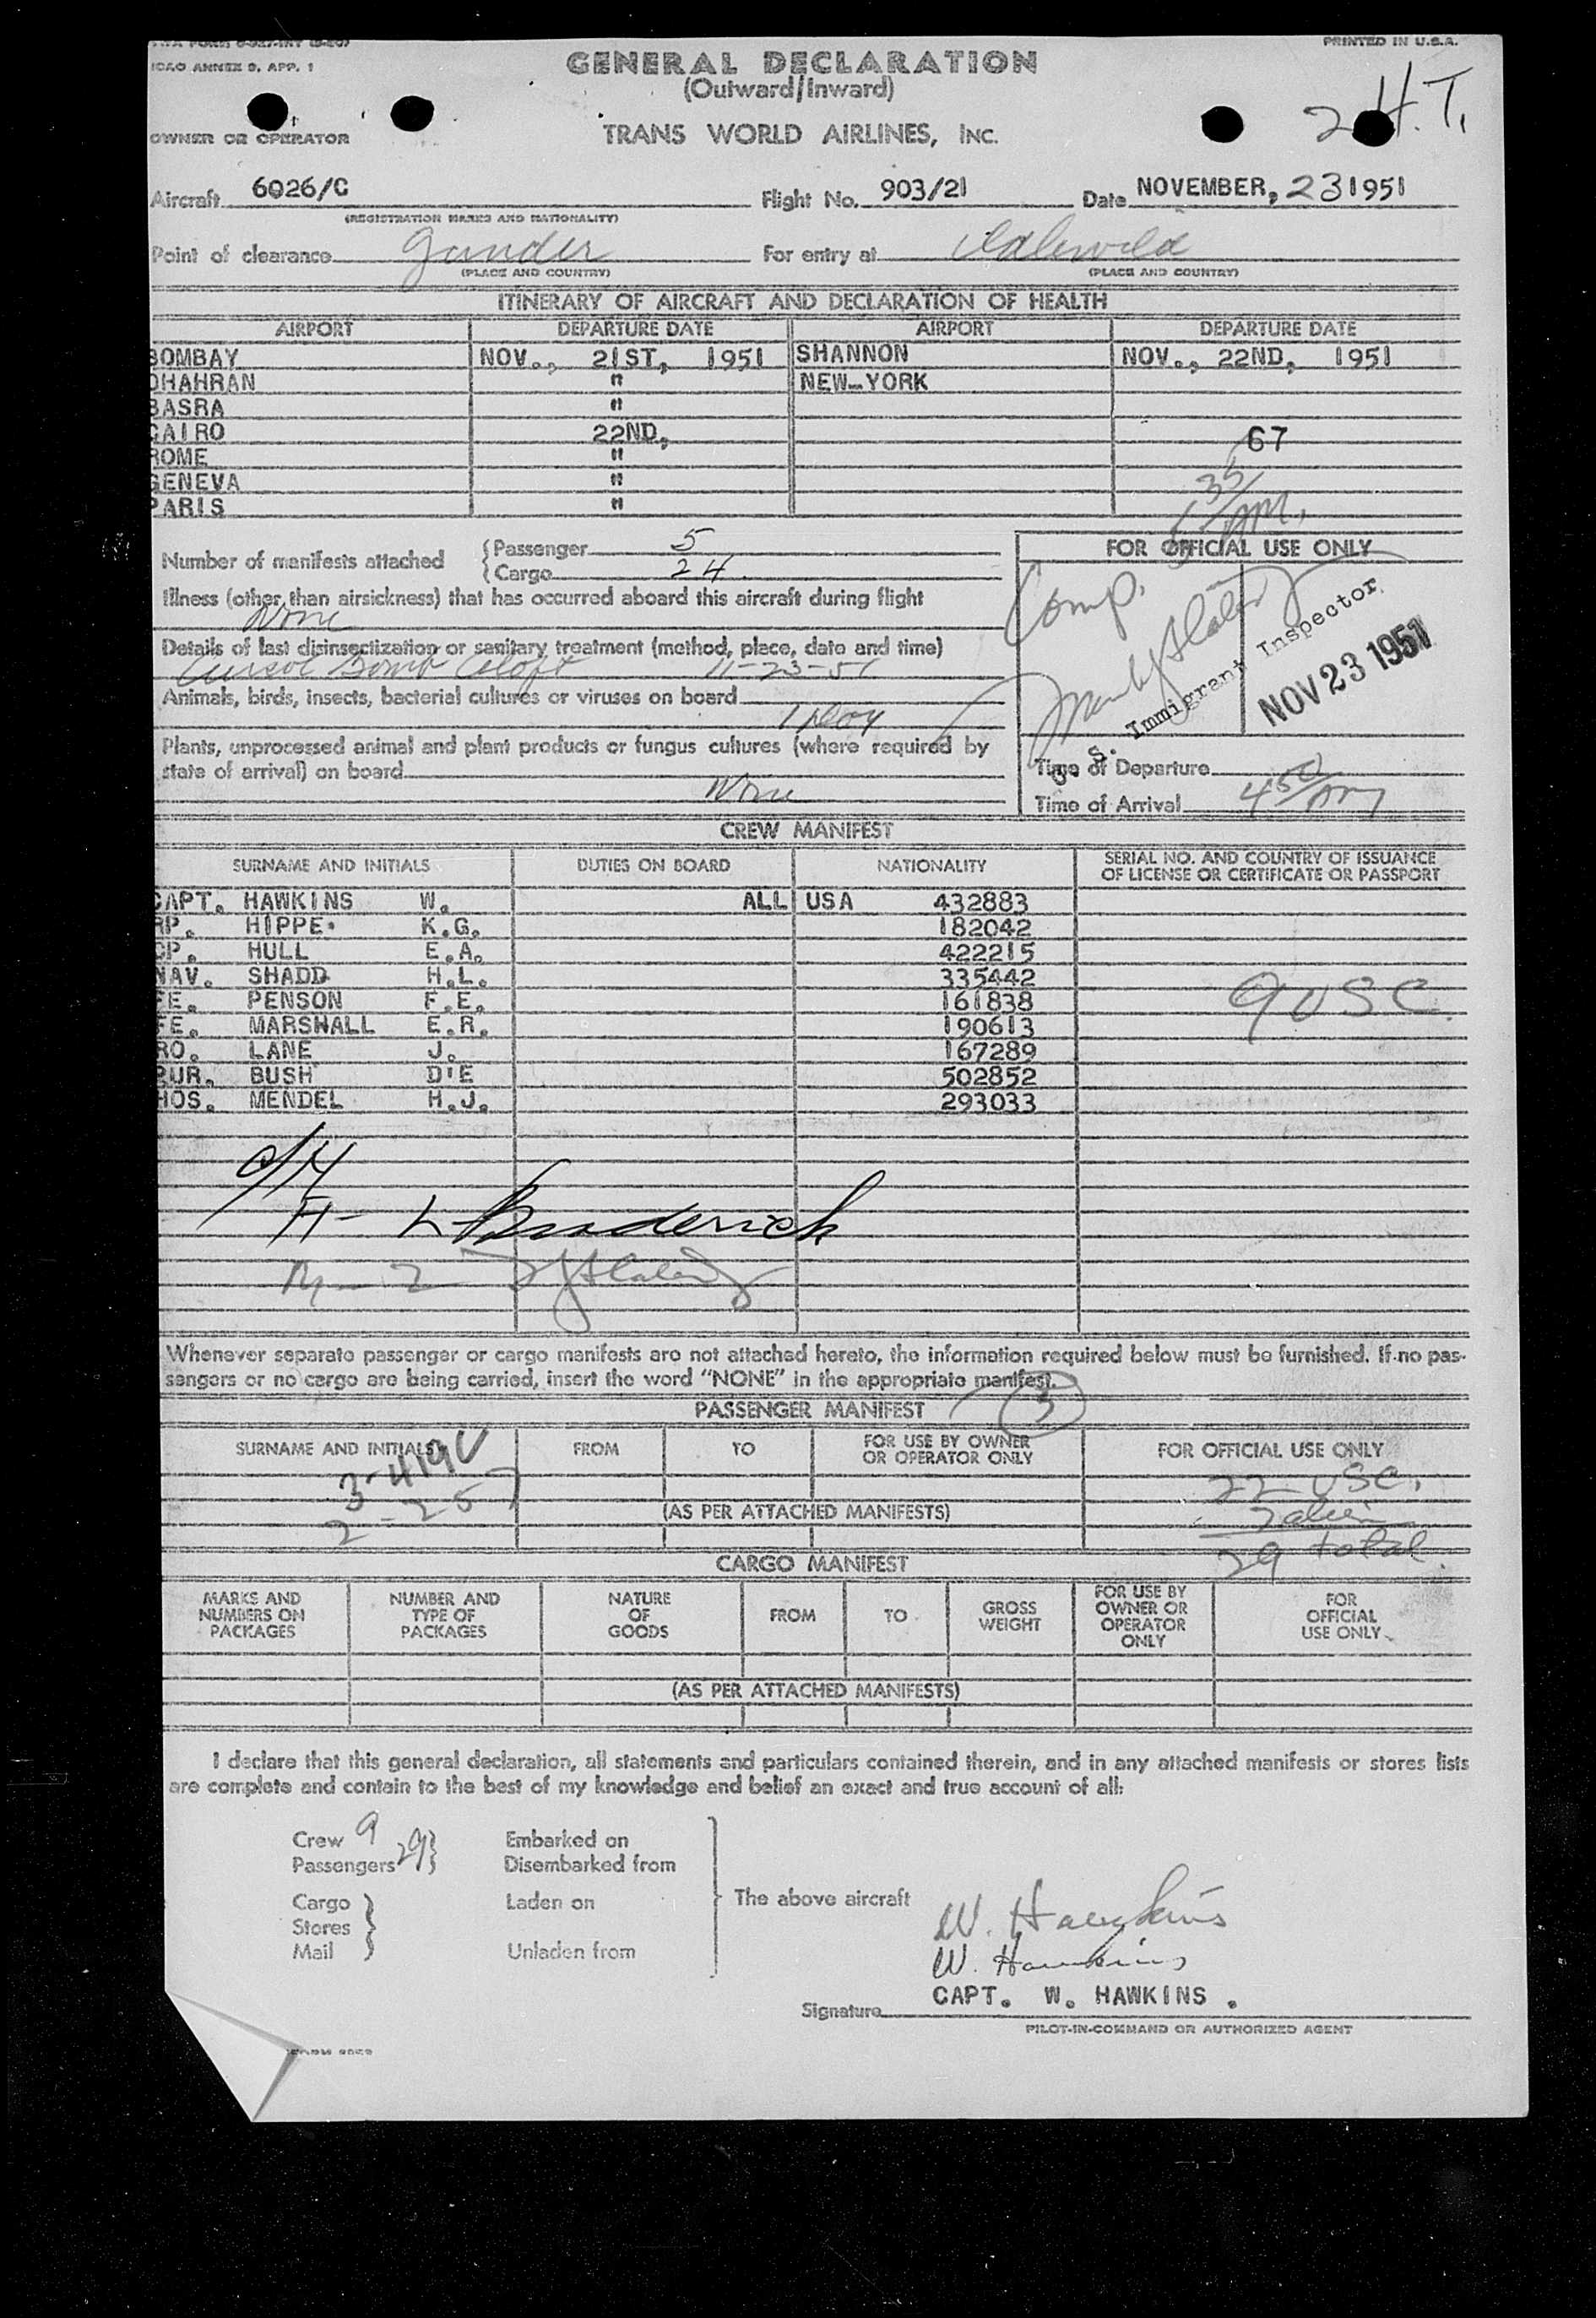 ICAO ANNEX 9, APP. 1
PRINTED IN U.S.A.
GENERAL DECLARATION
(Outward/Inward)
2 H.T.
OWNER OR OPERATOR
TRANS WORLD AIRLINES, INC.
Aircraft 6026/C Flight No. 903/21 Date NOVEMBER, 23 1951
(REGISTRATION MARKS AND NATIONALITY)
Point of clearance Gander For entry at Idlewild
(PLACE AND COUNTRY) (PLACE AND COUNTRY)
ITINERARY OF AIRCRAFT AND DECLARATION OF HEALTH
AIRPORT DEPARTURE DATE AIRPORT DEPARTURE DATE
BOMBAY NOV., 21ST, 1951 SHANNON NOV., 22ND, 1951
DHAHRAN " NEW-YORK
BASRA "
CAIRO 22ND, 67
ROME "
GENEVA "
PARIS "
535 AM.
Number of manifests attached {Passenger 5
{Cargo 24
FOR OFFICIAL USE ONLY
Comp.
Illness (other than airsickness) that has occurred aboard this aircraft during flight
None
Details of last disinsectization or sanitary treatment (method, place, date and time)
Aerosol Bomb Aloft 11-23-51
Animals, birds, insects, bacterial cultures or viruses on board
1 Dog
U. S. Immigrant Inspector
NOV 23 1951
Plants, unprocessed animal and plant products or fungus cultures (where required by
state of arrival) on board
None
Time of Departure
Time of Arrival 450 AM
CREW MANIFEST
SURNAME AND INITIALS DUTIES ON BOARD NATIONALITY SERIAL NO. AND COUNTRY OF ISSUANCE
OF LICENSE OR CERTIFICATE OR PASSPORT
CAPT. HAWKINS W. ALL USA 432883
RP. HIPPE. K.G. 182042
CP. HULL E.A. 422215
NAV. SHADD H.L. 335442
FE. PENSON F.E. 161838
9 USC.
FE. MARSHALL E.R. 190613
RO. LANE J. 167289
PUR. BUSH D'E 502852
HOS. MENDEL H.J. 293033
H- L Broderick
Whenever separate passenger or cargo manifests are not attached hereto, the information required below must be furnished. If no pas-
sengers or no cargo are being carried, insert the word "NONE" in the appropriate manifest.
PASSENGER MANIFEST
5
SURNAME AND INITIALS FROM TO FOR USE BY OWNER
OR OPERATOR ONLY
FOR OFFICIAL USE ONLY
3-419C
2-257
22 USC.
7 alien
(AS PER ATTACHED MANIFESTS)
29 total
CARGO MANIFEST
MARKS AND
NUMBERS ON
PACKAGES
NUMBER AND
TYPE OF
PACKAGES
NATURE
OF
GOODS
FROM
TO
GROSS
WEIGHT
FOR USE BY
OWNER OR
OPERATOR
ONLY
FOR
OFFICIAL
USE ONLY
(AS PER ATTACHED MANIFESTS)
I declare that this general declaration, all statements and particulars contained therein, and in any attached manifests or stores lists
are complete and contain to the best of my knowledge and belief an exact and true account of all:
Crew 9 Embarked on
Passengers 29} Disembarked from
Cargo } Laden on
The above aircraft
Stores
Mail Unladen from
W. Hawkins
W. Hawkins
CAPT. W. HAWKINS .
Signature
PILOT-IN-COMMAND OR AUTHORIZED AGENT